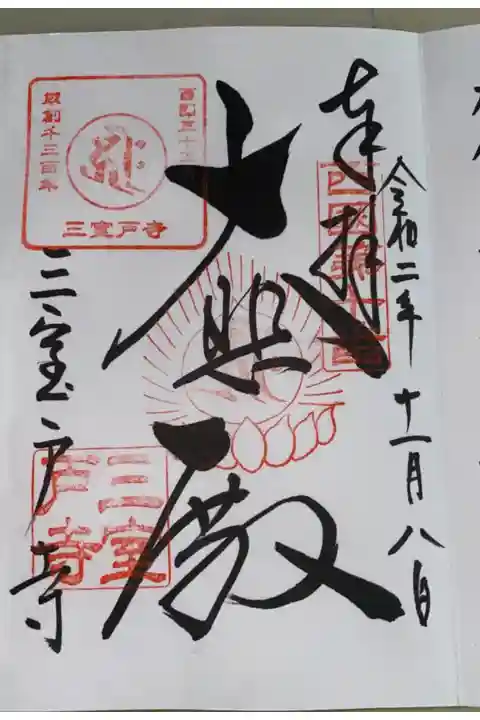 奉拝
令和二年十一月八日
西国第十番
大悲殿
西国三十三
草創千三百年
三室戸寺
三室戸寺
三室戸寺